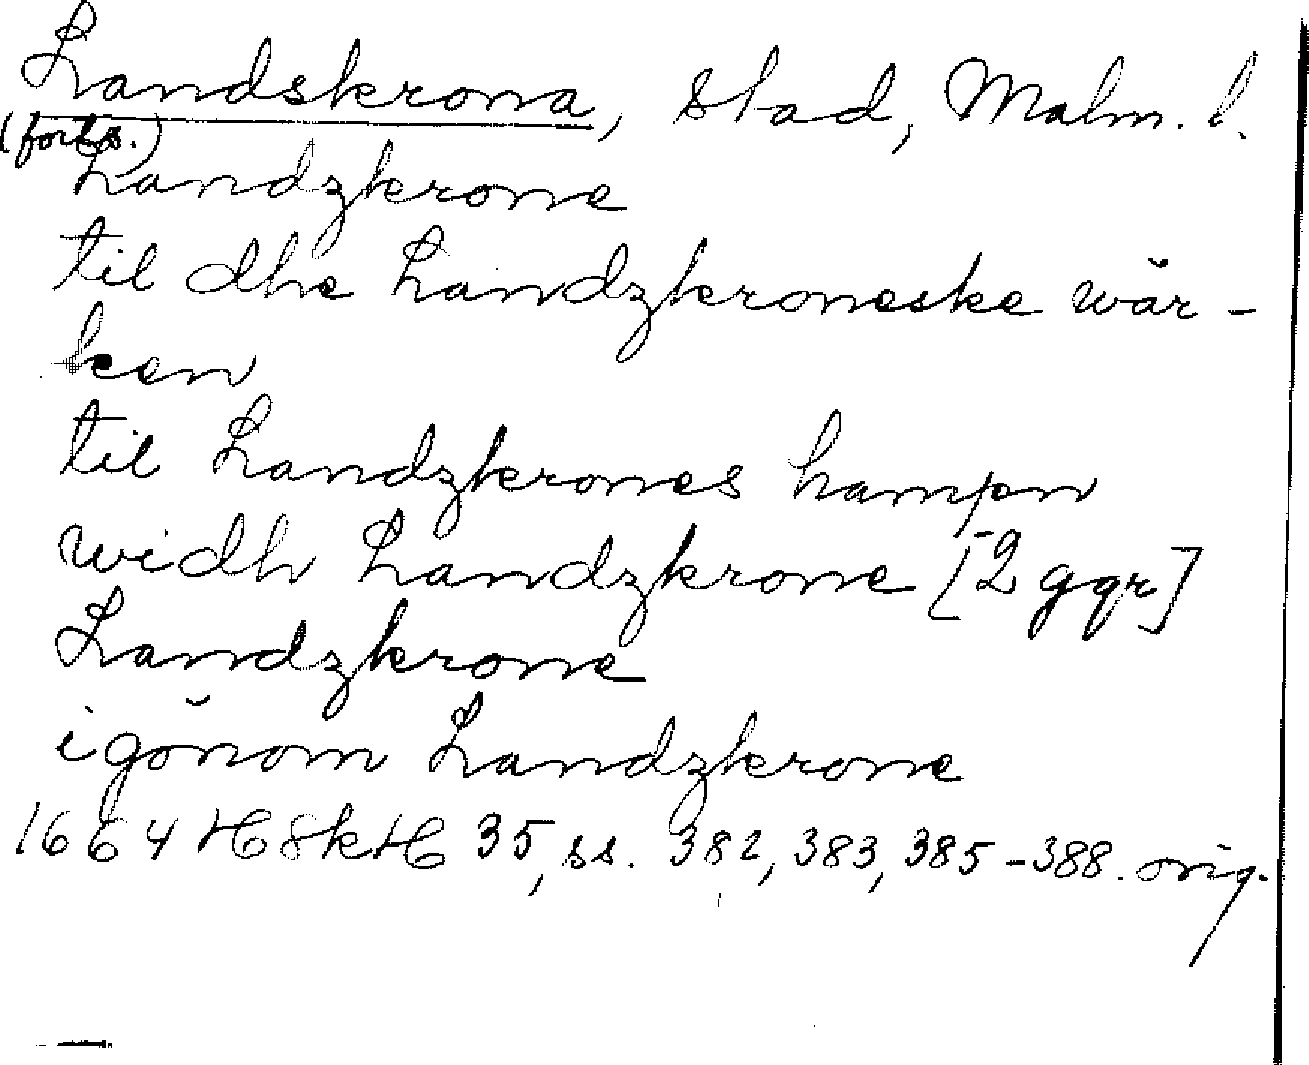 Landskrona, stad, Malm. l.
(forts.)
Landzkrone
til dhe Landzkroneske wär-
ken
til Landzkrones hampn
widh Landzkrone [2 ggr]
Landzkrone
igönom Landzkrone
1664 H8kH 35, ss. 382, 383, 385-388. orig.